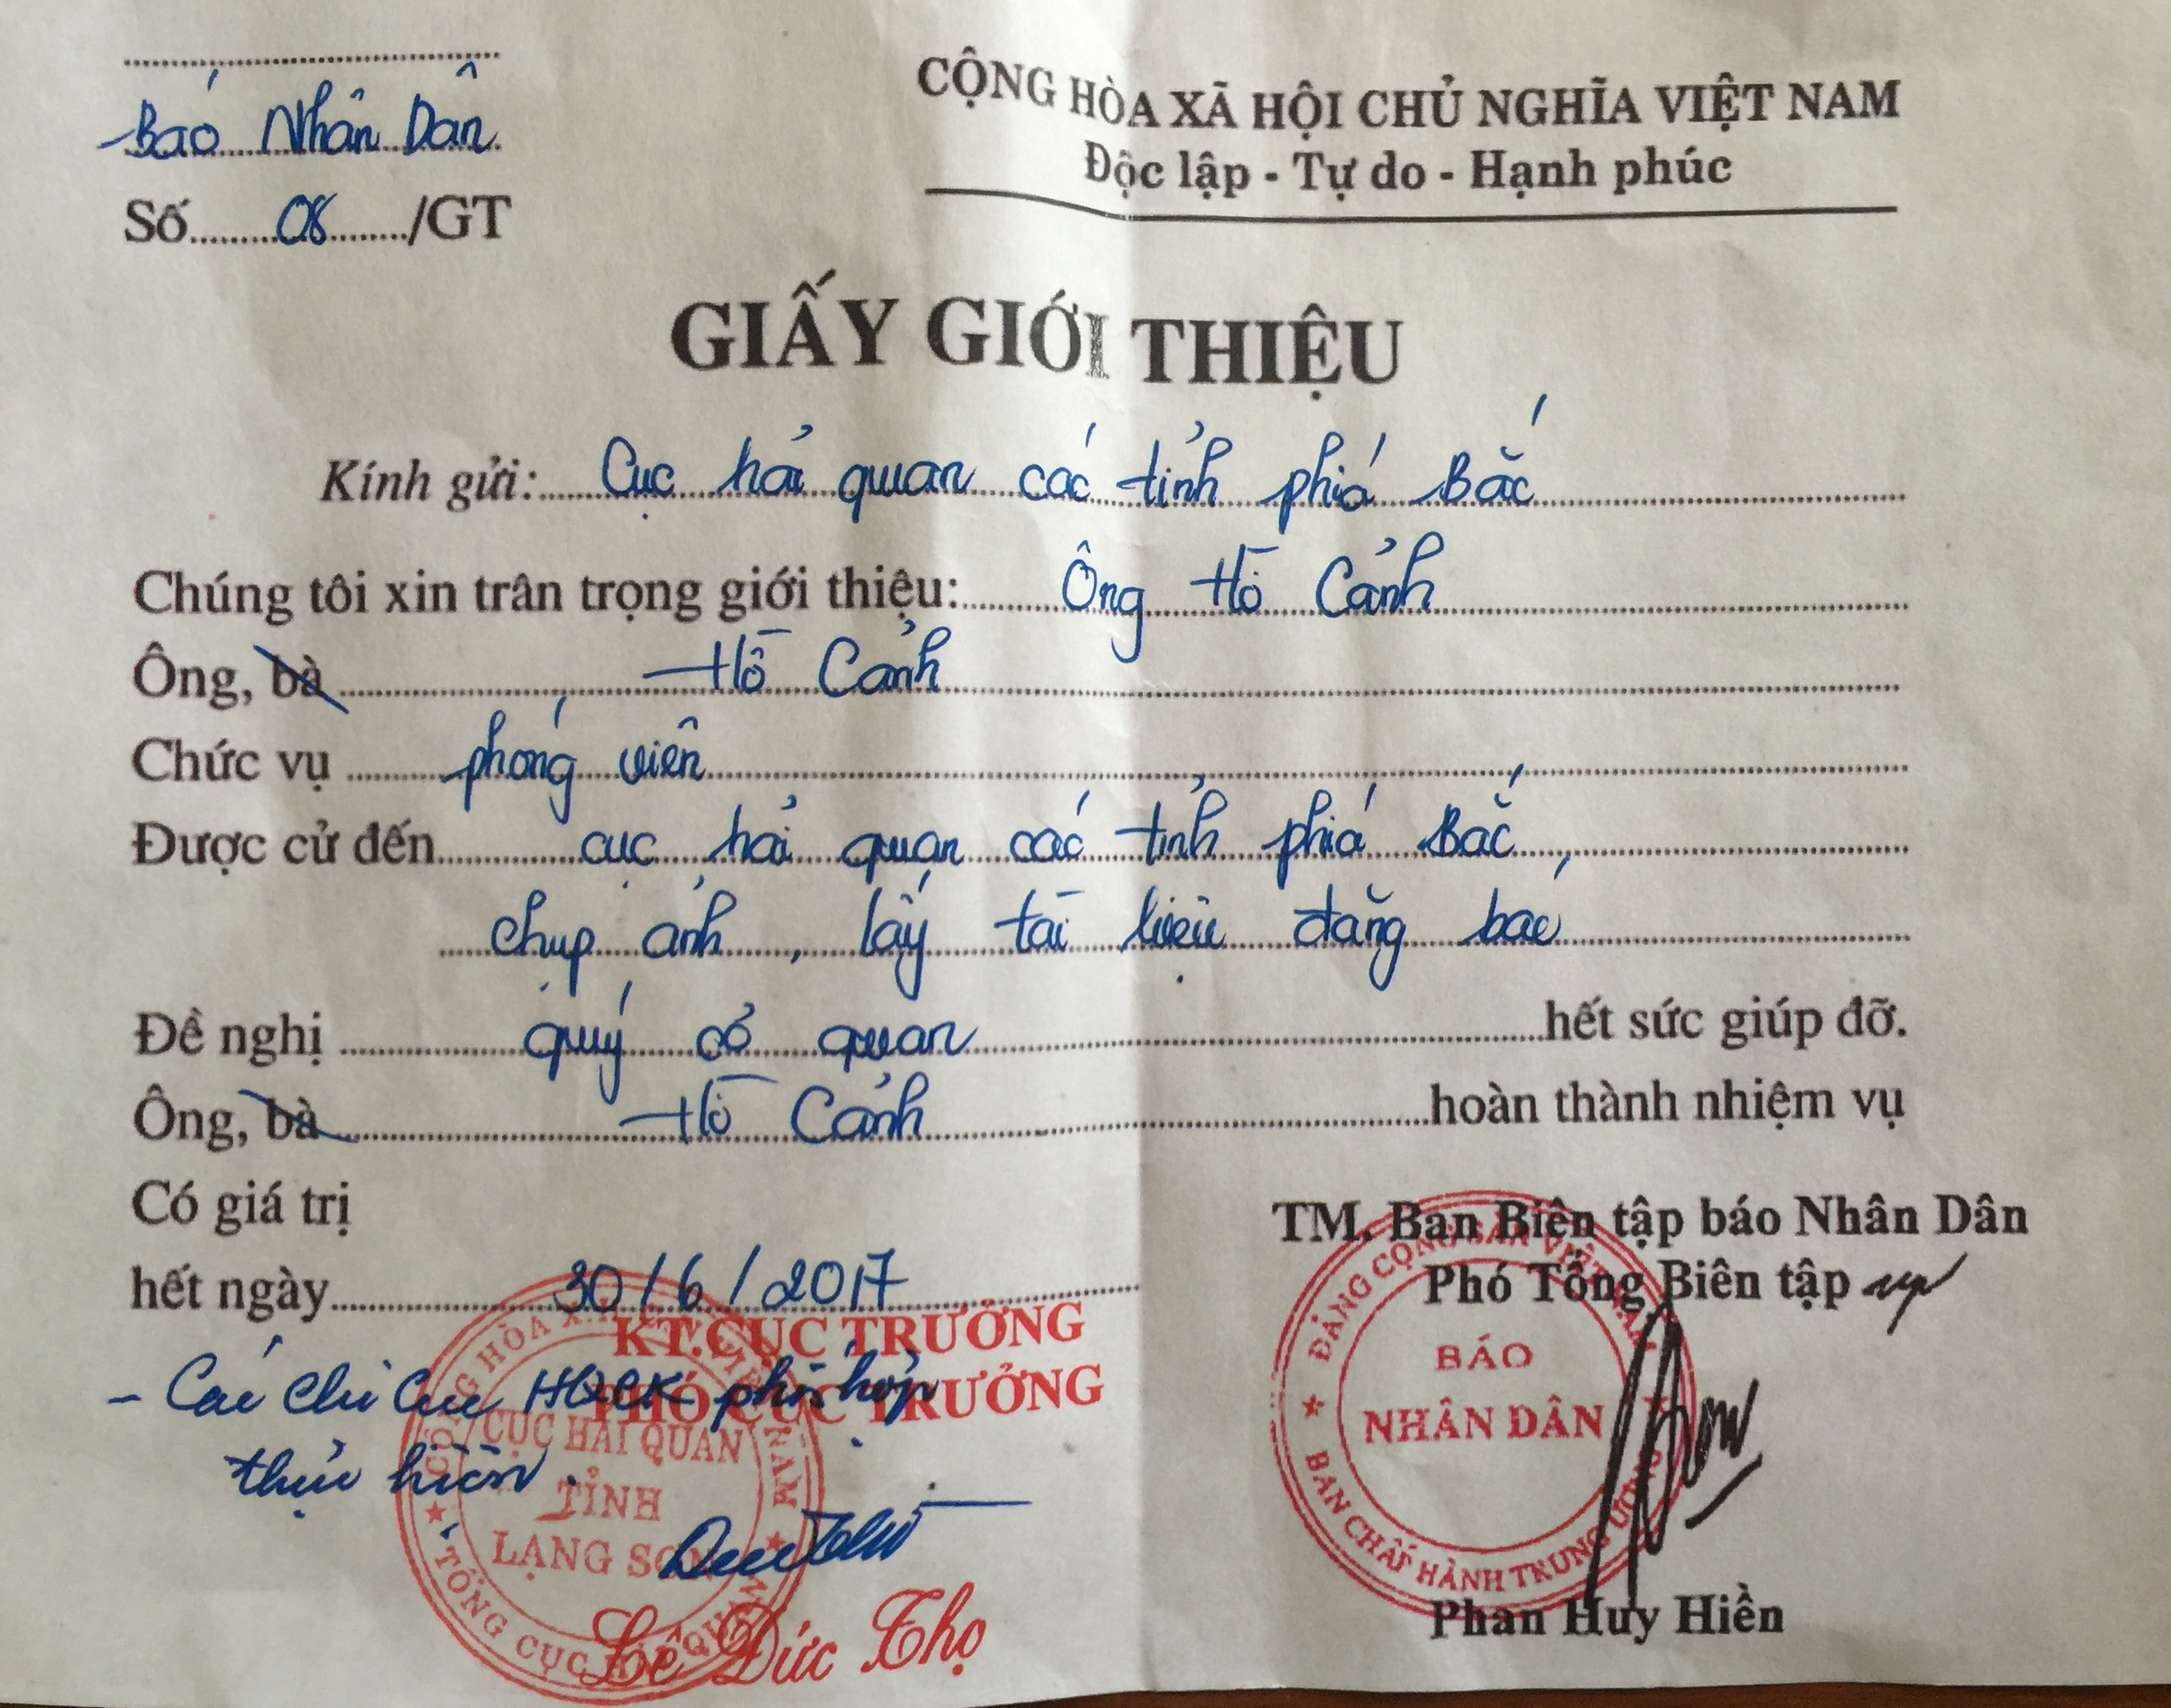 CỘNG HÒA XÃ HỘI CHỦ NGHĨA VIỆT NAM
Độc lập - Tự do - Hạnh phúc
báo Nhân Dân
Số 08 /GT
GIẤY GIỚI THIỆU
Kính gửi: Cục hải quan các tỉnh phía bắc
Chúng tôi xin trân trọng giới thiệu: Ông Hồ Cảnh
Ông, bà Hồ Cảnh
Chức vụ phóng viên
Được cử đến cục hải quan các tỉnh phía bắc,
chụp ảnh, lấy tài liệu đăng báo
Đề nghị quý cơ quan hết sức giúp đỡ.
Ông, bà Hồ Cảnh hoàn thành nhiệm vụ
Có giá trị
hết ngày 30/6/2017
TM. Ban Biên tập báo Nhân Dân
Phó Tổng Biên tập
ĐẢNG CỘNG SẢN VIỆT NAM
BAN CHẤP HÀNH TRUNG ƯƠNG
BÁO
NHÂN DÂN
Phan Huy Hiền
- Các Chi Cục HQCK phối hợp
thực hiện
KT. CỤC TRƯỞNG
PHÓ CỤC TRƯỞNG
CỤC HẢI QUAN
TỈNH
LẠNG SƠN
TỔNG CỤC HẢI QUAN
Đức Thọ